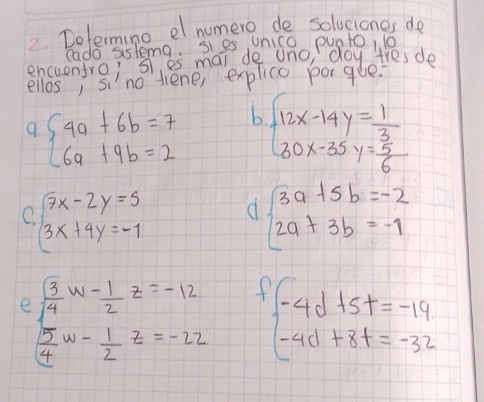 2. Determino el numero de soluciones de
cado sistema. si es unico punto, lo
encuentro; si es mas de uno, doy tres de
ellos, si no tiene, explico por que.
a { 4a + 6b = 7
6a + 9b = 2
b. { 12x - 14y = 1/3
30x - 35y = 5/6
c. { 7x - 2y = 5
3x + 4y = -1
d { 3a + 5b = -2
2a + 3b = -1
e { 3/4 w - 1/2 z = -12
5/4 w - 1/2 z = -22
f { -4d + 5t = -19.
-4d + 8t = -32